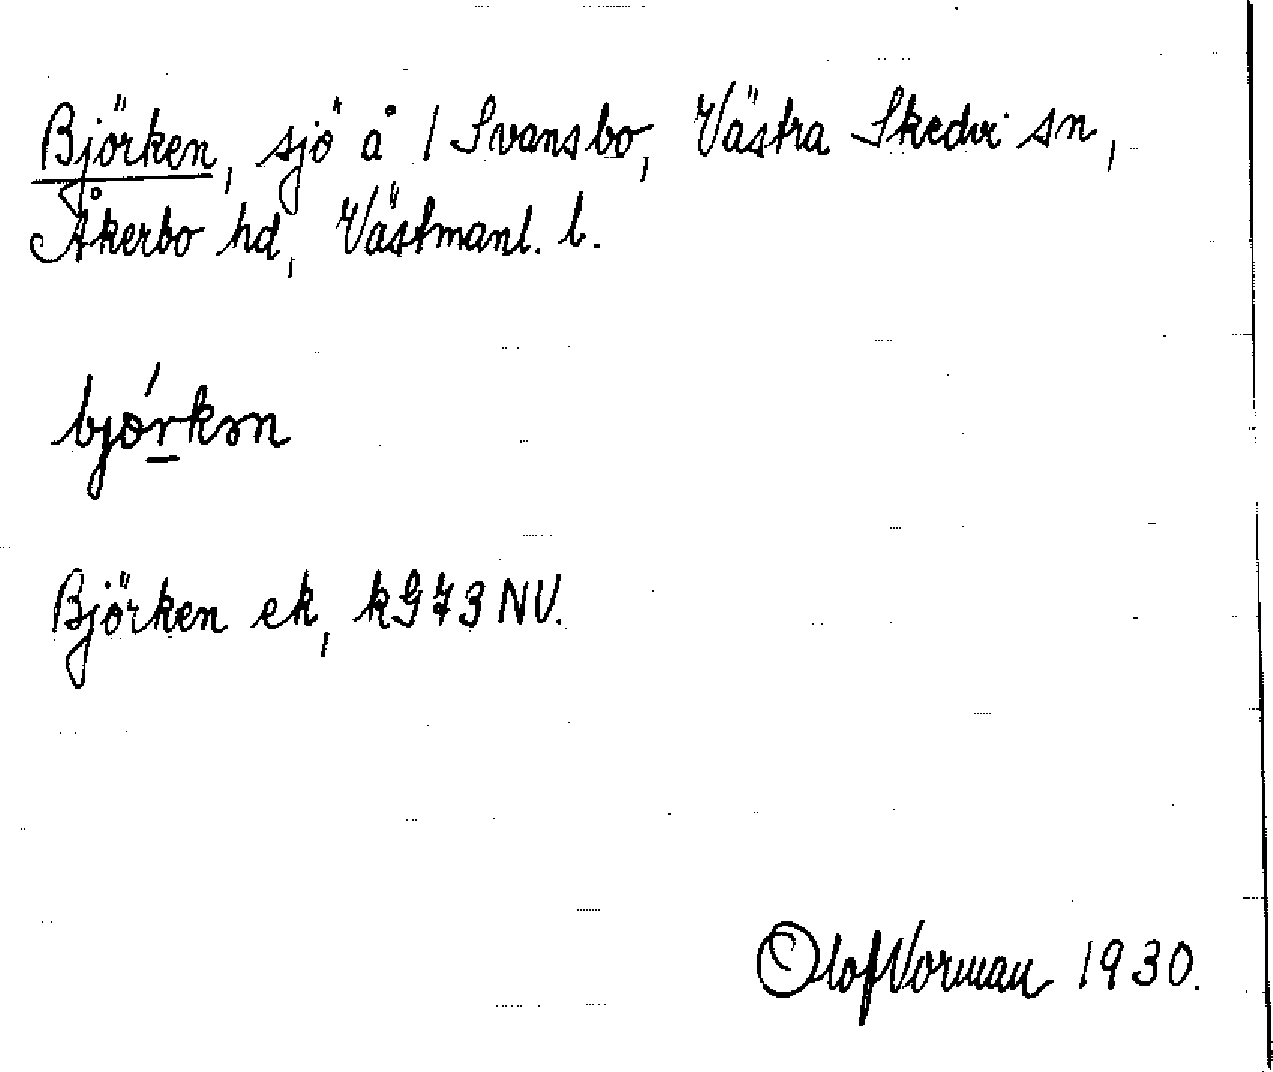 Björken, sjö å 1 Svansbo, Västra Skedvi sn,
Åkerbo hd, Västmanl. l.
bjórkən
Björken ek, kG73NV.
Olof Norman 1930.